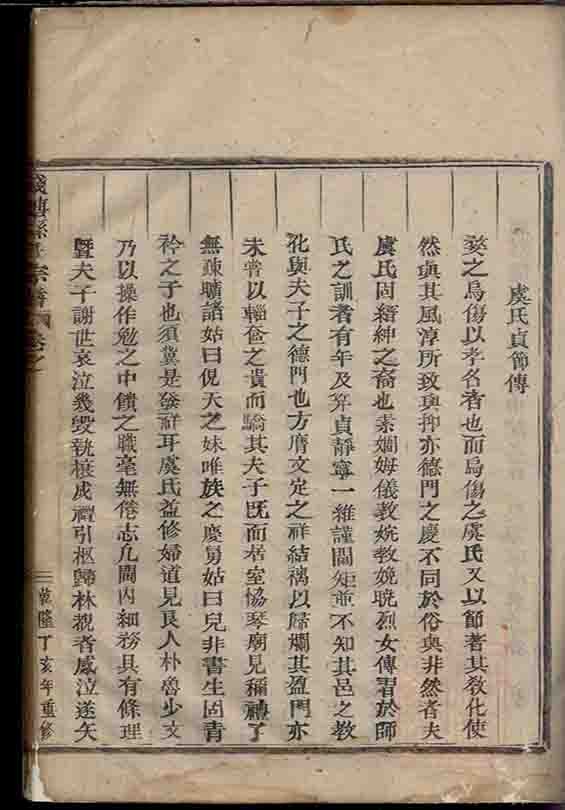 虞氏貞節傳
婺之烏傷以孝名者也而烏傷之虞氏又以節著其教化使
然與其風淳所致與抑亦德門之慶不同於俗與非然者夫
虞氏固縉紳之裔也素嫺姆儀教婉教娩晄烈女傳習於師
氏之訓者有年及笄貞靜寧一雖謹閫矩並不知其邑之教
化與夫子之德門也方膺文定之祥結褵以歸爛其盈門亦
未嘗以輜奩之貴而驕其夫子既而居室協琴廟見稱禮了
無踈曠諸姑曰俔天之妹唯族之慶舅姑曰兒非書生固青
衿之子也須冀是發祥耳虞氏益修婦道見良人朴魯少文
乃以操作勉之中饋之職毫無倦志凡閫內細務具有條理
暨夫子謝世哀泣幾毀執喪成禮引柩歸林觀者感泣遂矢
宗譜
乾隆丁亥年重修